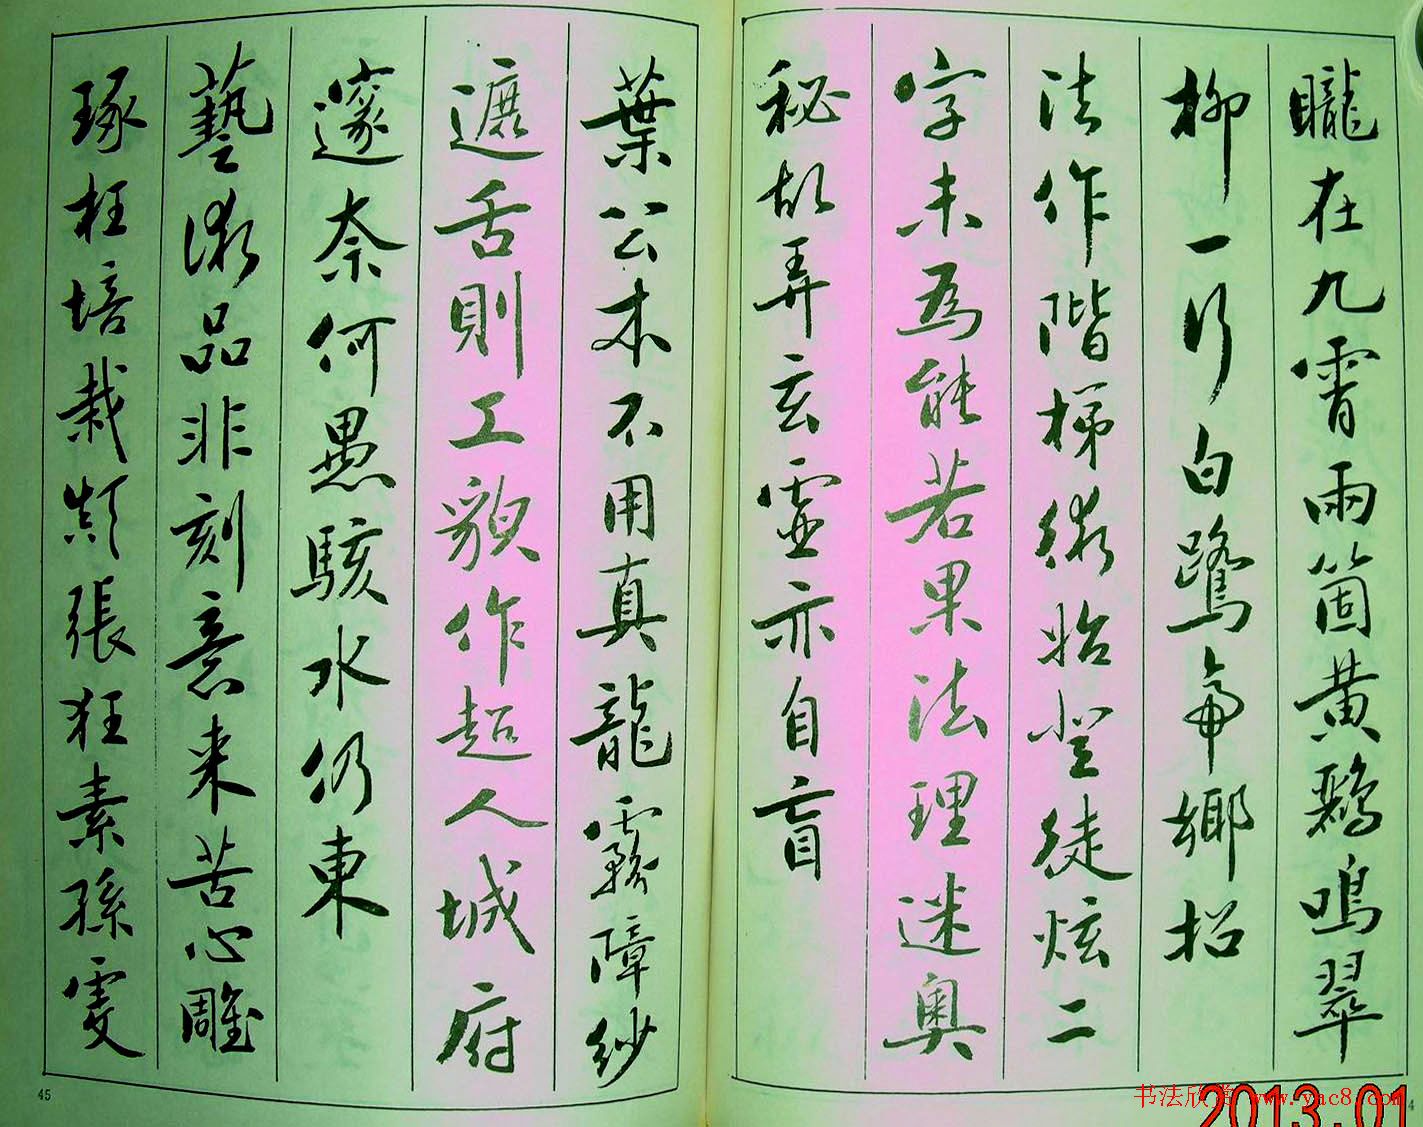 矓在九霄兩箇黃鸝鳴翠
柳一行白鷺帝鄉招
法作階梯術始登徒炫二
字未為能若果法理迷奧
秘故弄玄虛亦自盲
葉公本不用真龍霧障紗
遮舌則工貌作超人城府
邃奈何愚駭水仍東
藝術品非刻意來苦心雕
琢枉培栽顛張狂素孫虔
45
书法欣赏 www.yac8.com
2013.01